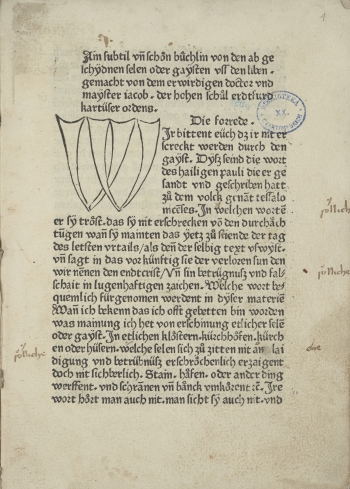 Ain subtil vñ schön büchlin von den ab ge
schydnen selen oder gaysten vss den liben.
gemacht von dem erwirdigen doctor vnd
mayster iacob. der hohen schůl erdtfurd
kartüser ordens.
Die forrede.
Ir bittent eüch dz ir nit er
screckt werden durch den
gayst. Dysz seind die wort
des hailigen pauli die er ge
sandt vnd geschriben hatt
zů dem volck genāt tessalo
In welchen wortē
er sy tröst. das sy nit erschrecken vō den durchäch
tügen wañ sy mainten das yetz zů der tag
des letsten vrtails/als deñ der selbig text
vñ sagt in das vor künftig sie der verloren sun den
wir nēnen den endtcrist/Vñ sin betrügnusz vnd fal
schait in lugenhaftigen zaichen. Welche wort be
quemlich fürgenomen werdent in dyser materiē
Wañ ich bekenn das ich offt gebetten bin worden
was mainung ich het von erschinung etlicher selē
oder gayst. In etlichen klöstern. kürchhöfen. kürch
en oder hüsern. welche selen sich zů zitten mit an lai
digung vnd betrübnusz erschröchenlich erzaigent
doch nit sichberlich. Stain. häfen. oder ander ding
werffent. vnd schränen vñ bänck vmkörent ec. Ire
wort hört man auch nit. man sicht sy auch nit. vnd